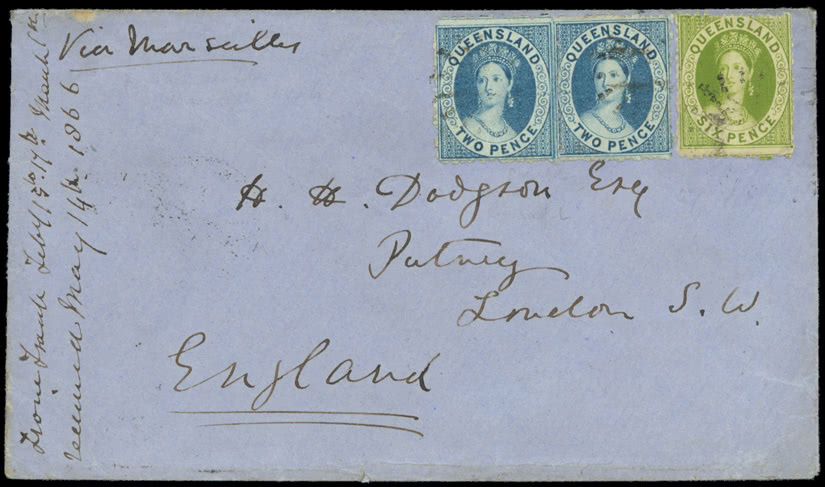 Via Marseilles
QUEENSLAND
TWO PENCE
QUEENSLAND
TWO PENCE
QUEENSLAND
SIX PENCE
H. H. Dodgson Esq
Putney
London S. W.
England
From Frank Feby 15th 17th March
received May 14th 1866